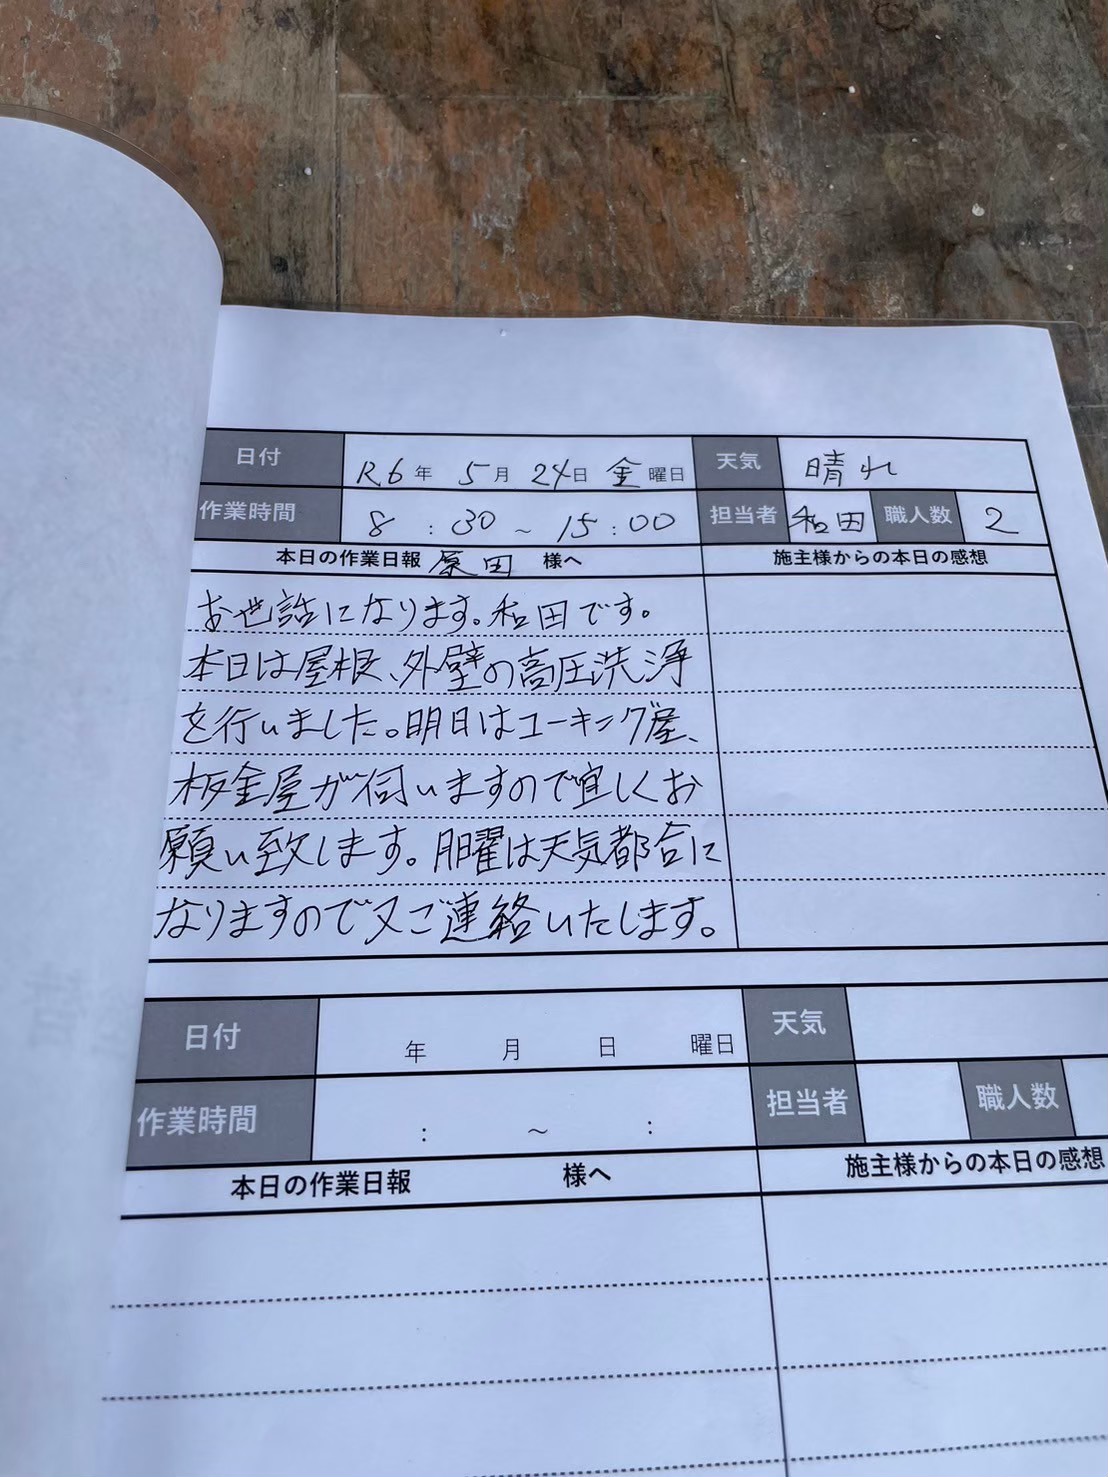 日付 R6年 5月 24日 金曜日 天気 晴れ
作業時間 8:30~15:00 担当者 和田 職人数 2
本日の作業日報 原田 様へ 施主様からの本日の感想
お世話になります。和田です。
本日は屋根、外壁の高圧洗浄
を行いました。明日はコーキング屋、
板金屋が伺いますので宜しくお
願い致します。月曜は天気都合に
なりますので又ご連絡いたします。
日付 年 月 日 曜日 天気
作業時間 : ~ : 担当者 職人数
本日の作業日報 様へ 施主様からの本日の感想